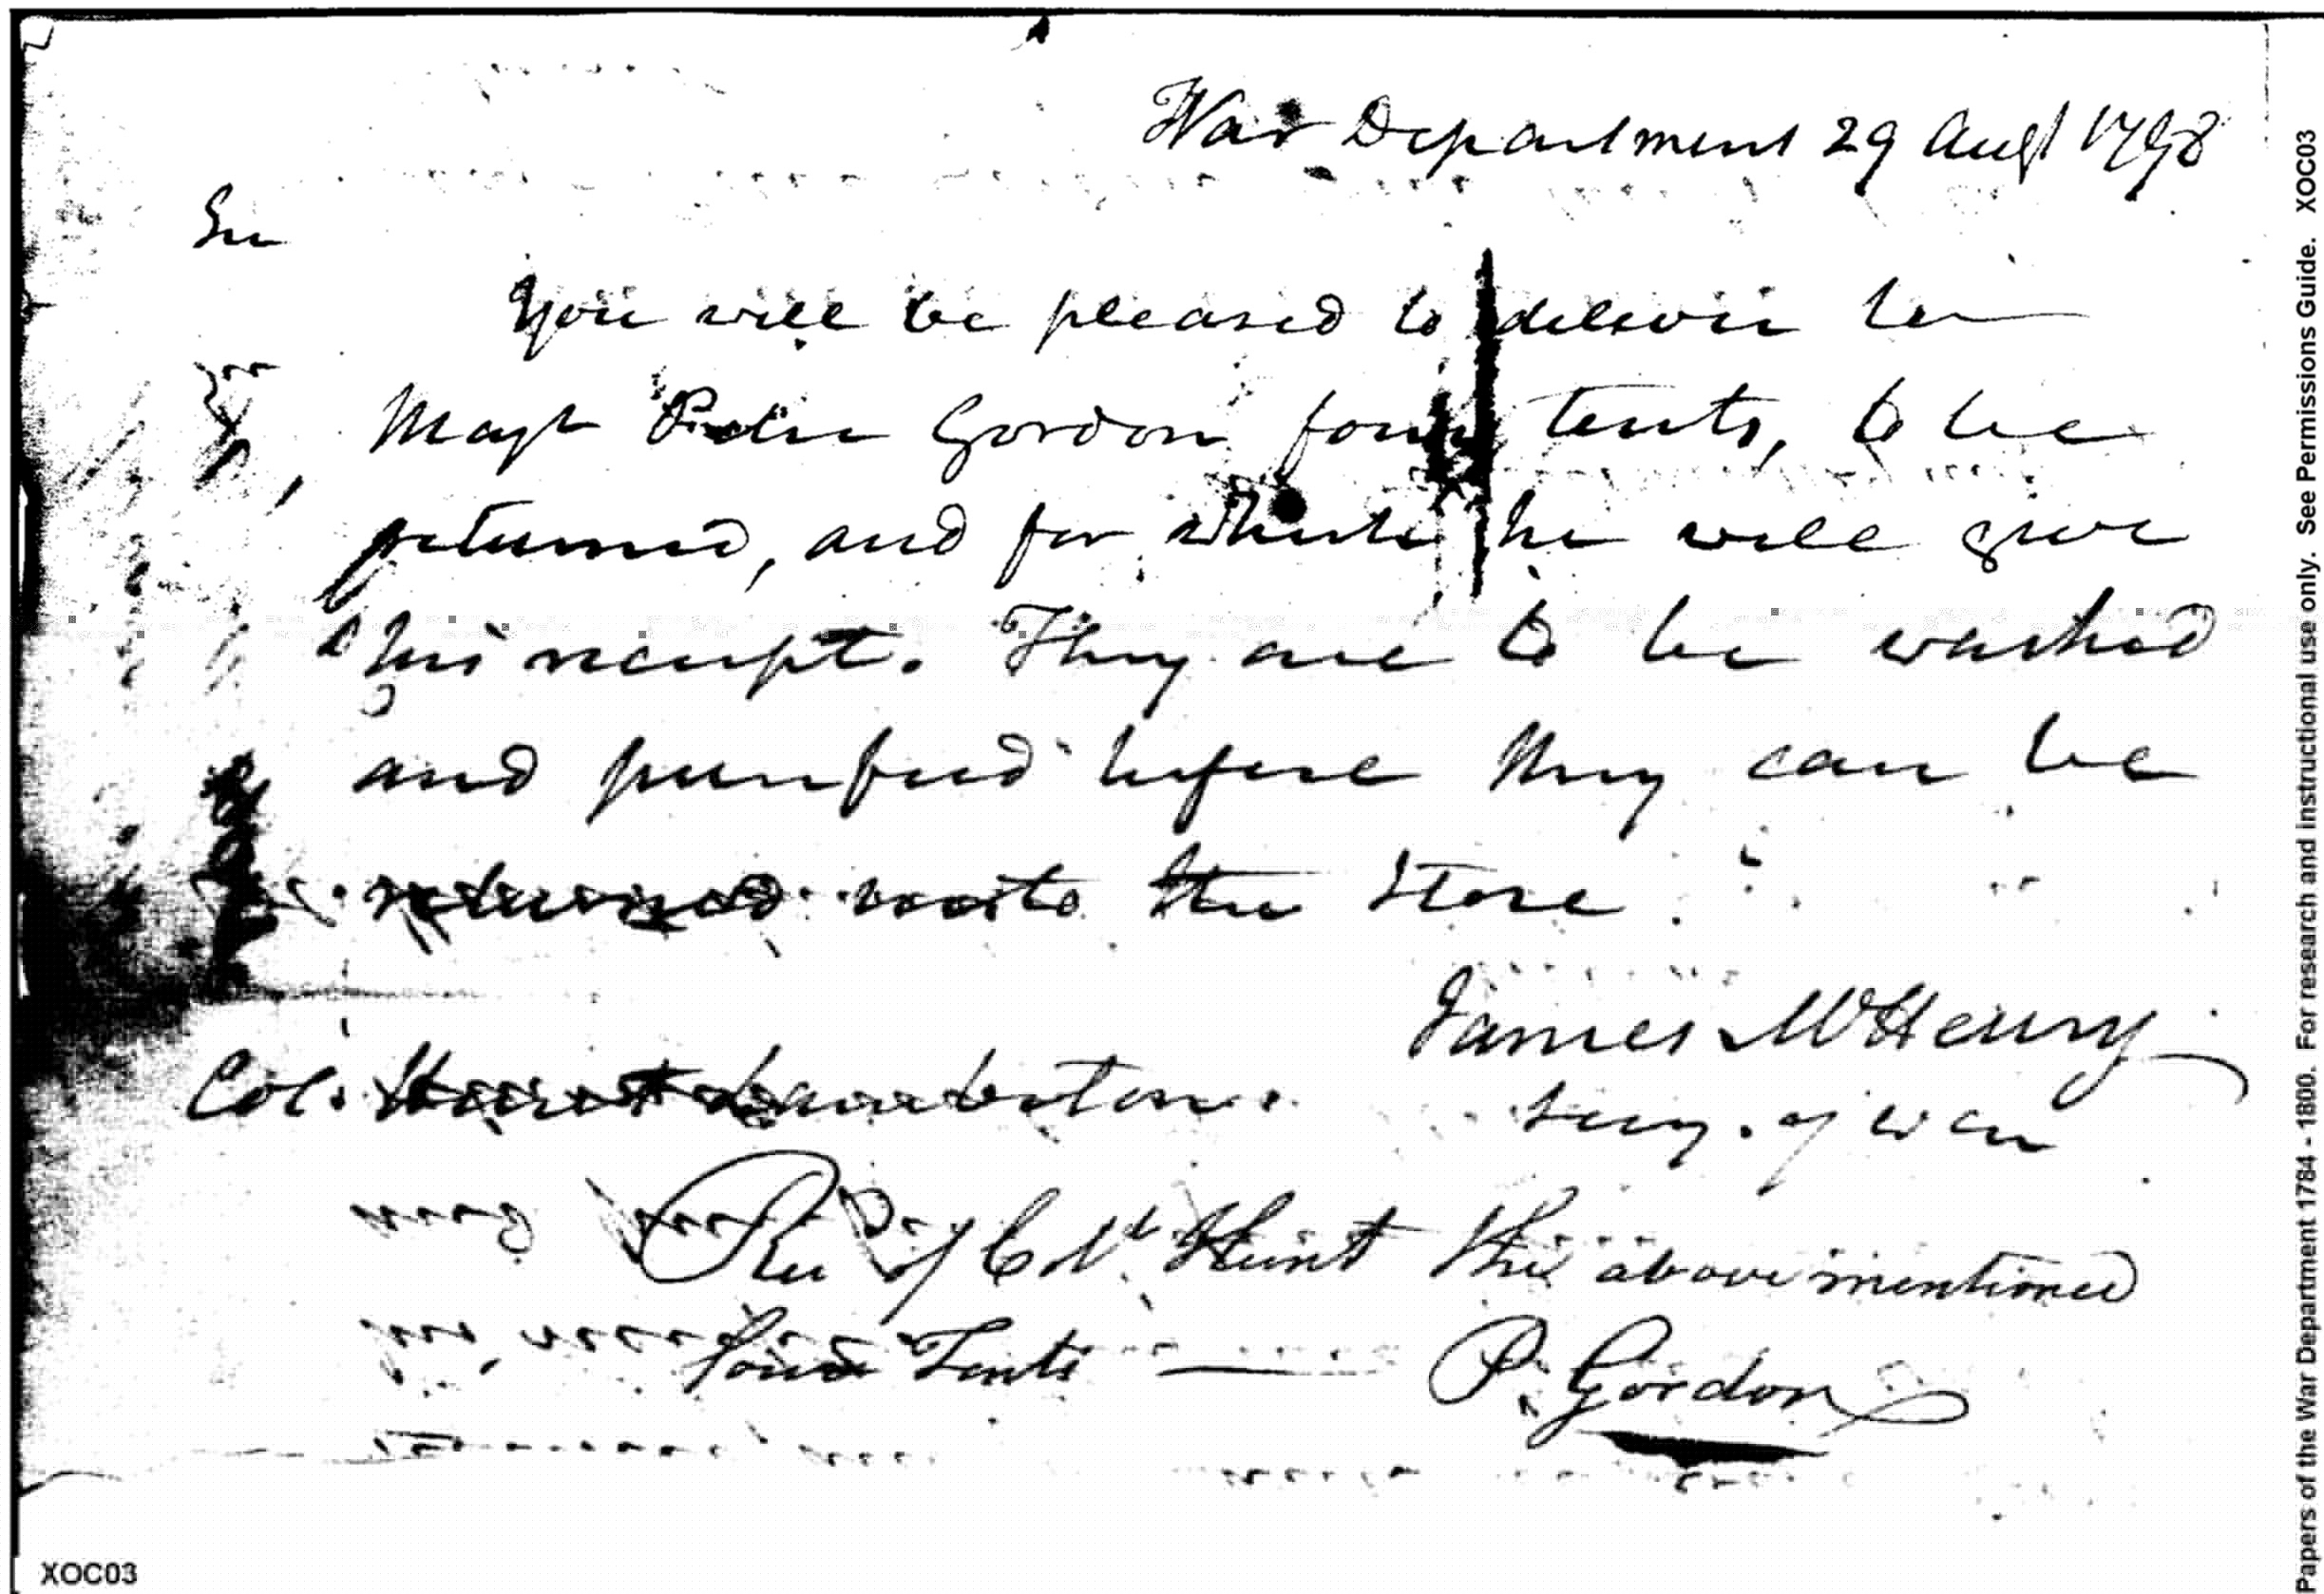 War Department 29 Augt 1798
Sir
You will be pleased to deliver to
Majr Peter Gordon four tents, to be
returned, and for which he will give
his receipt. They are to be washed
and purified before they can be
returned into the Store.
James McHenry
Secy. of War
Col.
Rec'd of Coll. Hunt the above mentioned
four Tents — P. Gordon
XOC03
Papers of the War Department 1784 - 1800. For research and instructional use only. See Permissions Guide. XOC03